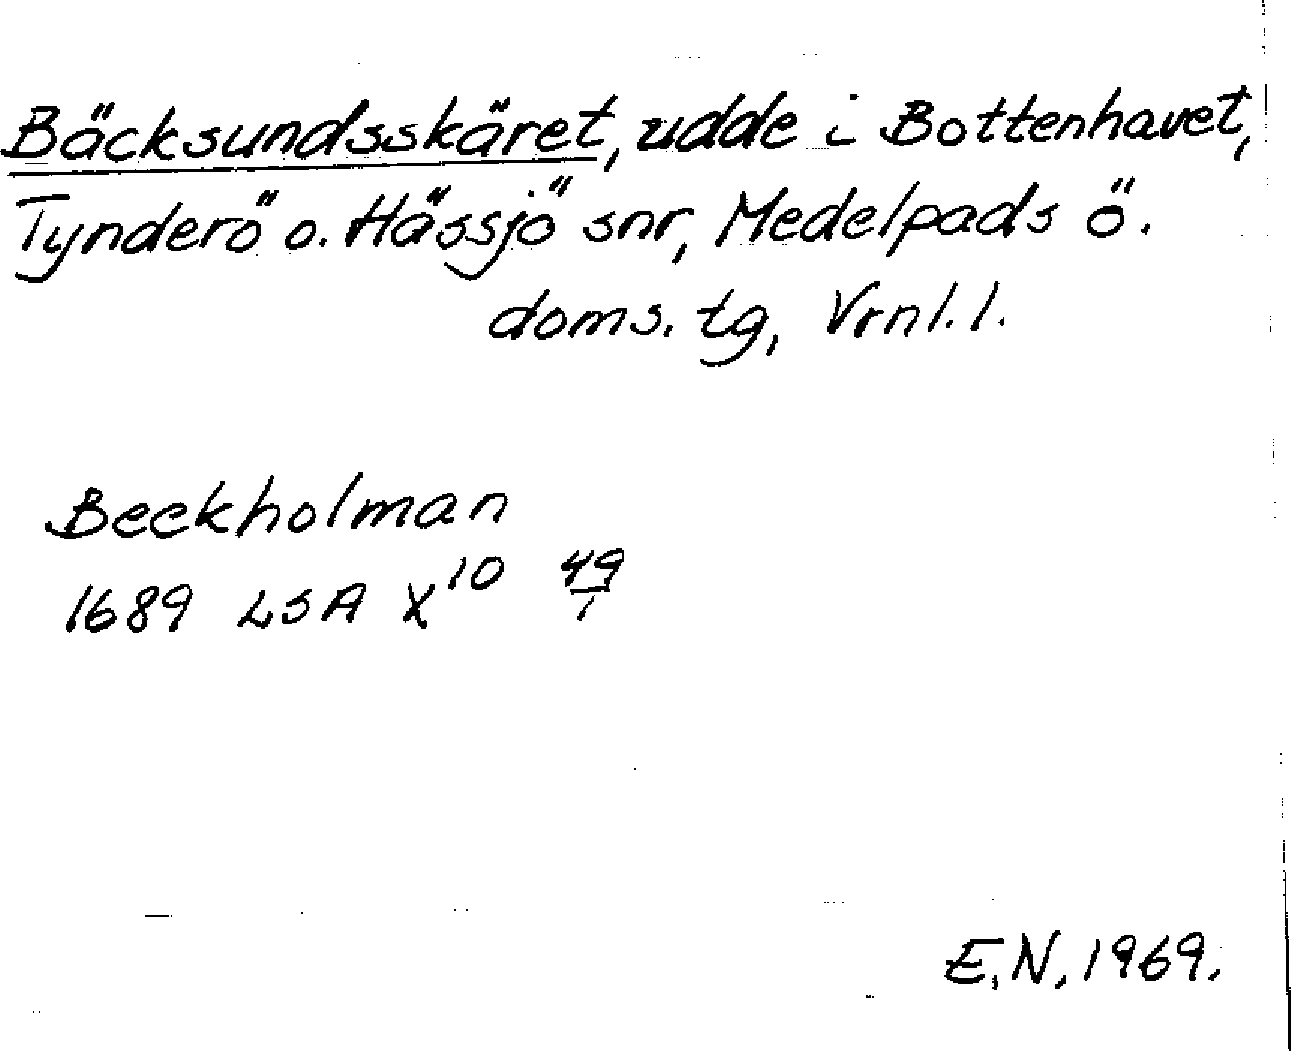 Bäcksundsskäret, udde i Bottenhavet,
Tynderö o. Hässjö snr, Medelpads ö.
doms. tg, Vrnl. l.
Beckholman
1689 LSA X¹⁰ 49/1
E.N. 1969.